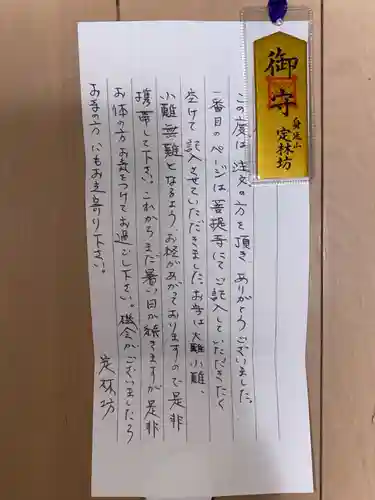 御守
身延山
定林坊
この度は注文の方を頂きありがとうございました。
一番目のページは菩提寺にてご記入していただきたく
空けて記入させていただきました。お守は大難小難、
小難無難となるよう、お経があがっておりますので是非
携帯して下さい。これからまだ暑い日が続きますが是非
お体の方お気をつけてお過ごし下さい。機会がございましたら
お寺の方にもお立寄り下さい。
定林坊